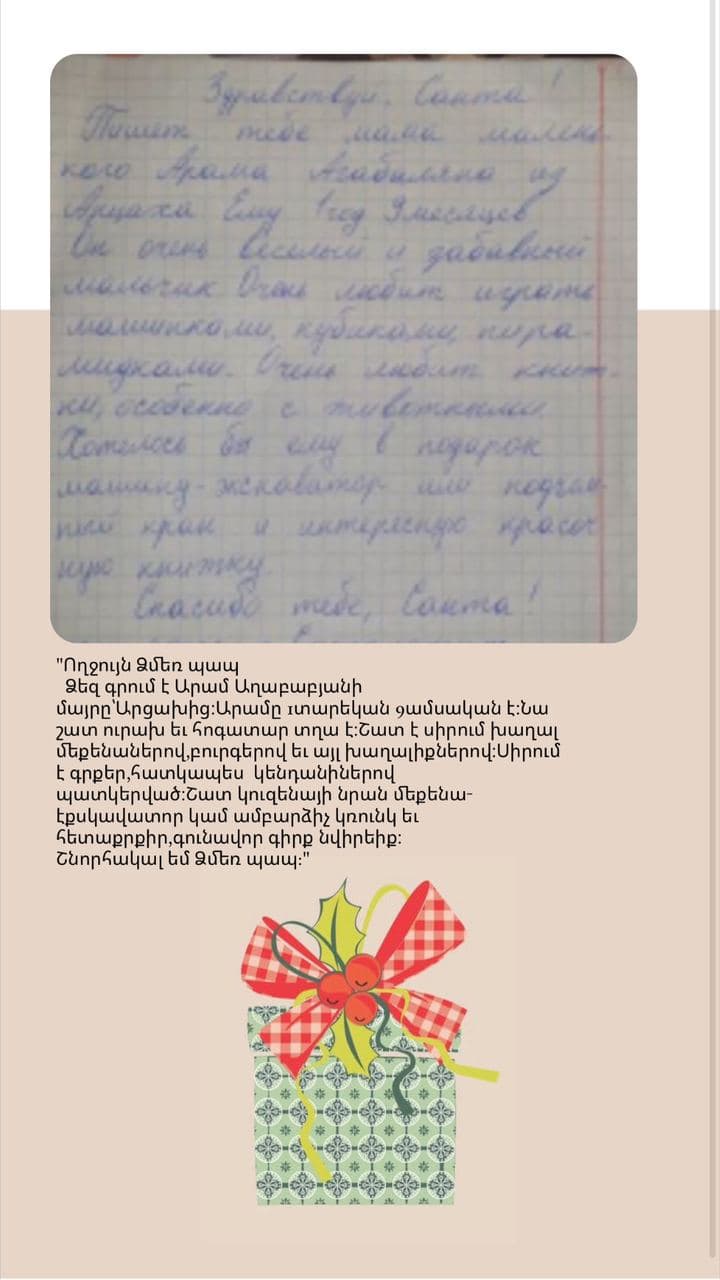 Здравствуй, Санта!
Пишет тебе мама малень-
кого Арама Агабаляна из
Арцаха Ему 1 год 9 месяцев
Он очень веселый и забавный
мальчик Очень любит играть
машинками, кубиками, пира-
мидками. Очень любит книж-
ки, особенно с животными
Хотелось бы ему в подарок
машину-экскаватор или подъем-
ный кран и интересную красоч
ную книжку
Спасибо тебе, Санта!
"Ողջույն Ձմեռ պապ
Ձեզ գրում է Արամ Աղաբաբյանի
մայրը՝Արցախից:Արամը 1տարեկան 9ամսական է:Նա
շատ ուրախ եւ հոգատար տղա է:Շատ է սիրում խաղալ
մեքենաներով,բուրգերով եւ այլ խաղալիքներով:Սիրում
է գրքեր,հատկապես կենդանիներով
պատկերված:Շատ կուզենայի նրան մեքենա-
էքսկավատոր կամ ամբարձիչ կռունկ եւ
հետաքրքիր,գունավոր գիրք նվիրեիք:
Շնորհակալ եմ Ձմեռ պապ:"